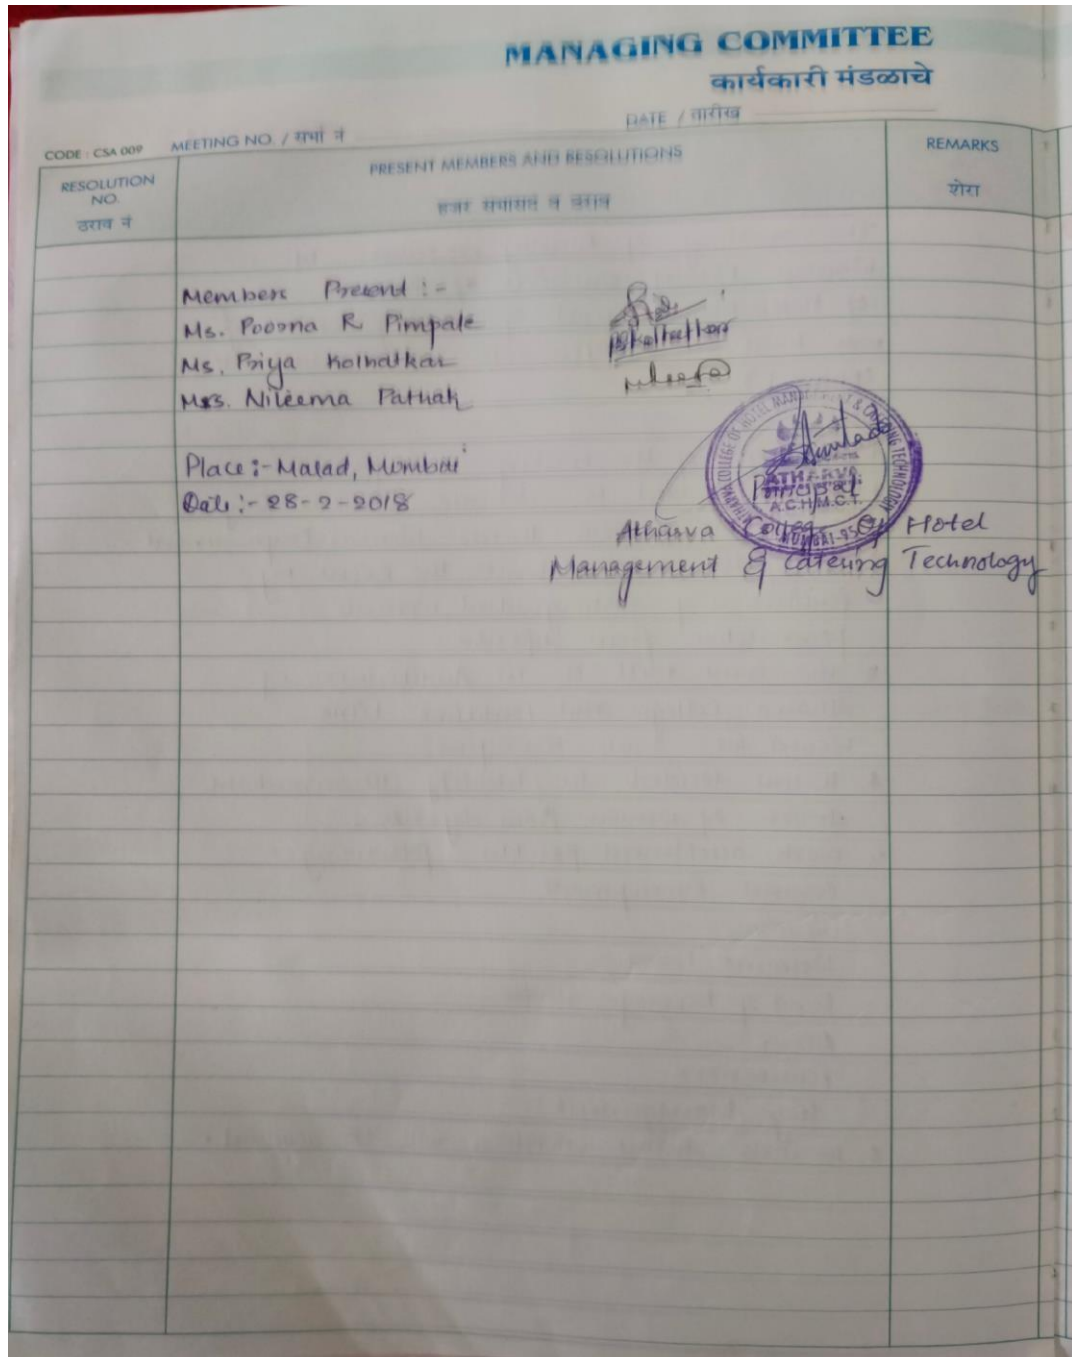 MANAGING COMMITTEE
कार्यकारी मंडळाचे
DATE / तारीख
CODE : CSA 009 MEETING NO. / सभा नं
RESOLUTION NO.
ठराव नं
PRESENT MEMBERS AND RESOLUTIONS
हजर सभासद व ठराव
REMARKS
शेरा
Members Present :-
Ms. Poorna R Pimpale
Ms. Priya Kolhatkar
Mrs. Nileema Pathak
Place :- Malad, Mumbai
Date :- 28-2-2018
ATHARVA COLLEGE OF HOTEL MANAGEMENT & CATERING TECHNOLOGY
ATHARVA
A.C.H.M.C.T.
MUMBAI-95
Principal
Atharva College Of Hotel
Management & Catering Technology